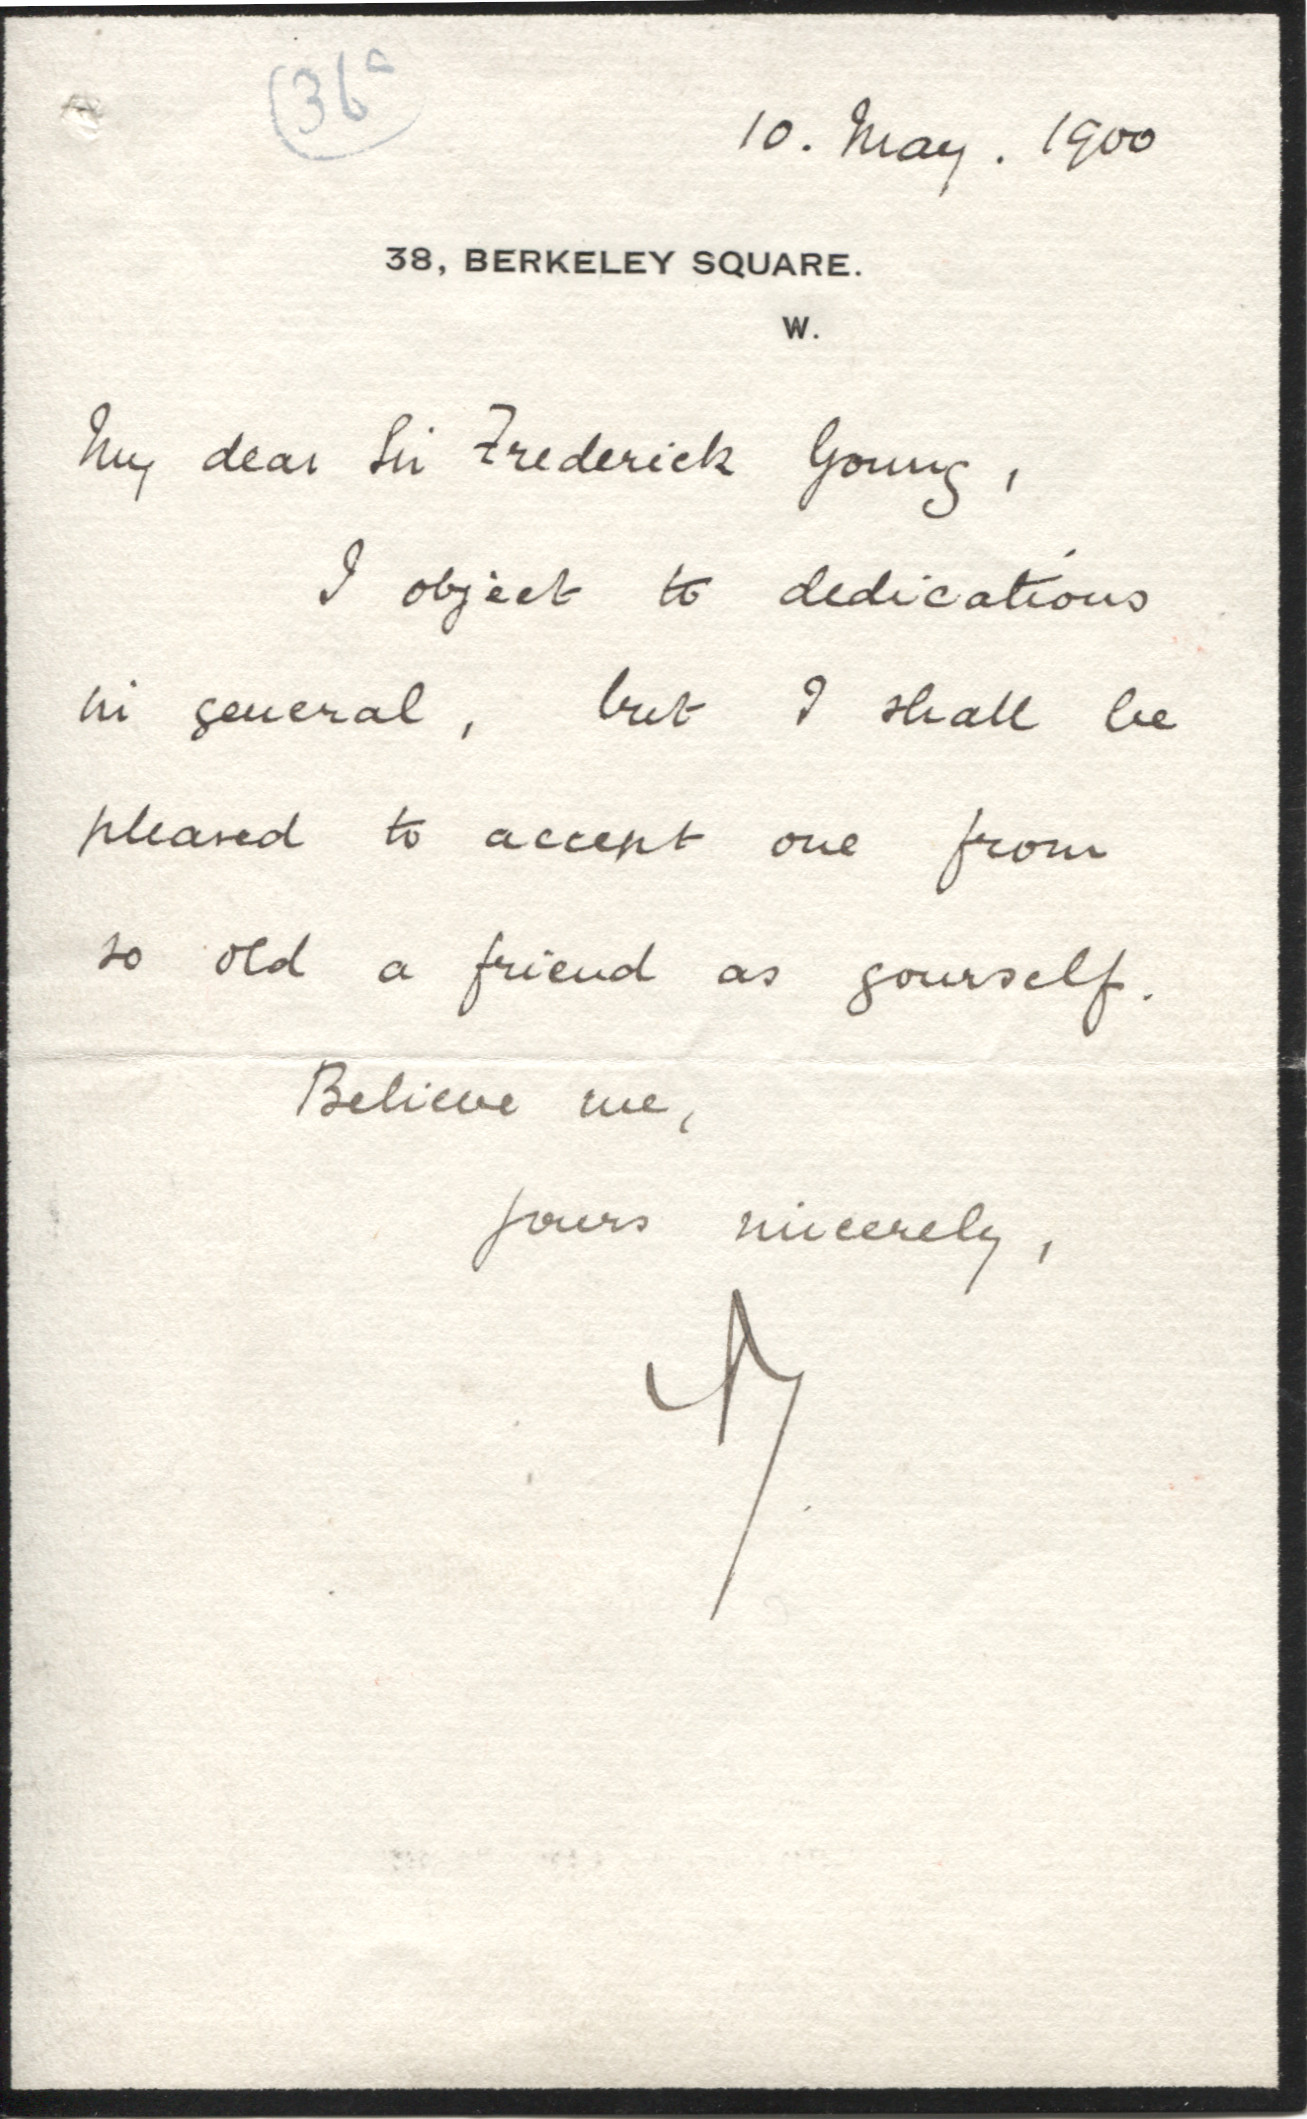 36a
10. May. 1900
38, BERKELEY SQUARE.
W.
My dear Sir Frederick Young,
I object to dedications
in general, but I shall be
pleased to accept one from
so old a friend as yourself.
Believe me,
yours sincerely,